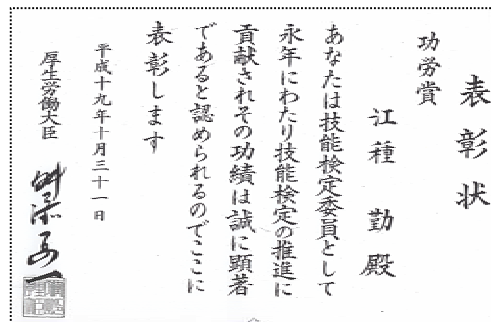 表彰状
功労賞
江種 勤殿
あなたは技能検定委員として
永年にわたり技能検定の推進に
貢献されその功績は誠に顕著
であると認められるのでここに
表彰します
平成十九年十月三十一日
厚生労働大臣